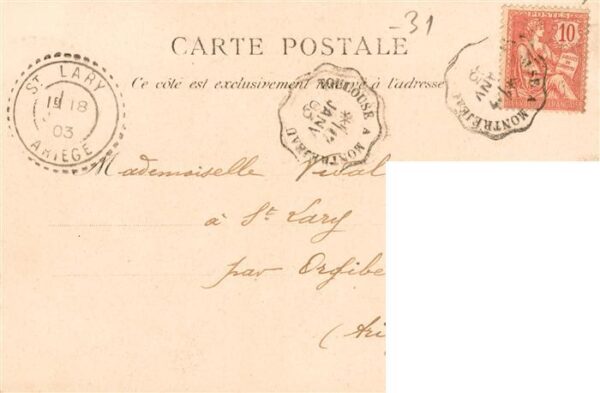 -31
CARTE POSTALE
Ce côté est exclusivement à l'adresse
POSTES
10
ST LARY
18
03
ARIÈGE
TOULOUSE A MONTRÉJEAU
JANV
03
MONTRÉJEAU
JANV
03
Mademoiselle Vidal
à St Lary
par Orgibe
(Ari